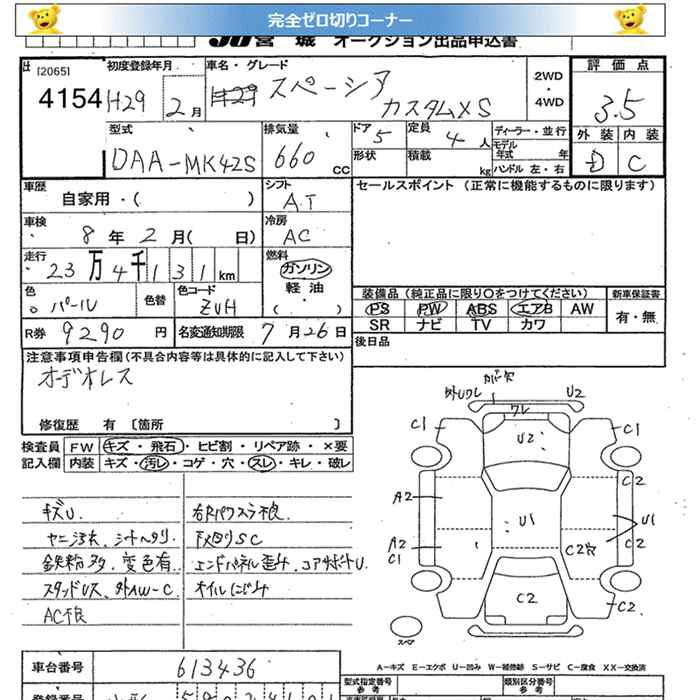 完全ゼロ切りコーナー
JU宮城 オークション出品申込書
[2065]
4154
初度登録年月
H29 2月
車名・グレード
スペーシア
カスタムXS
2WD
・
4WD
評価点
3.5
外装 内装
D C
型式
DAA-MK42S
排気量
660 cc
ドア 5
定員 4人
形状
積載 kg
ディーラー・並行
モデル年式 年
ハンドル 左・右
車歴
自家用・( )
シフト
AT
セールスポイント (正常に機能するものに限ります)
車検
8年2月( 日)
冷房
AC
走行
23万4千131km
燃料
ガソリン
軽油
( )
色
パール
色替
色コード
ZVH
装備品 (純正品に限り○をつけてください)
新車保証書
PS PW ABS エアB AW
SR ナビ TV カワ
有・無
R券 9290円
名変通知期限 7月26日
後日品
注意事項申告欄 (不具合内容等は具体的に記入して下さい)
オーデオレス
修復歴 有 [箇所 ]
検査員 FW キズ・飛石・ヒビ割・リペア跡・×要
記入欄 内装 キズ・汚レ・コゲ・穴・スレ・キレ・破レ
キズU.
鉄粉多、変色有.
AC不良
右Rパワスラ不良.
下回りSC
オイルにじみ
カバー欠
外Uワレ U2
ワレ
C1 U2 C1
A2 C2
U1 U1
A2 C2欠 C2
C1
C2 C2
スペア
A-キズ E-エクボ U-凹み W-補修跡 S-サビ C-腐食 XX-交換済
車台番号
613436
型式指定番号
参考
類別区分番号
参考